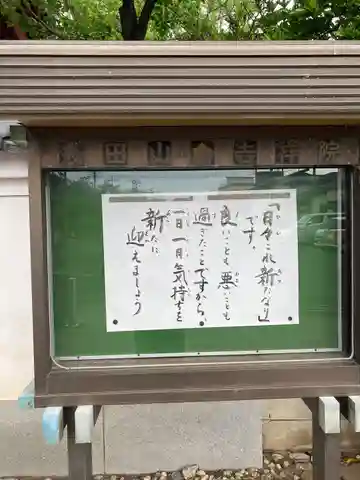 田山 吉祥院
「日々これ新たなり」
です。
良いことも悪いことも
過ぎたことですから、
一日一日気持ちを
新たに
迎えましょう